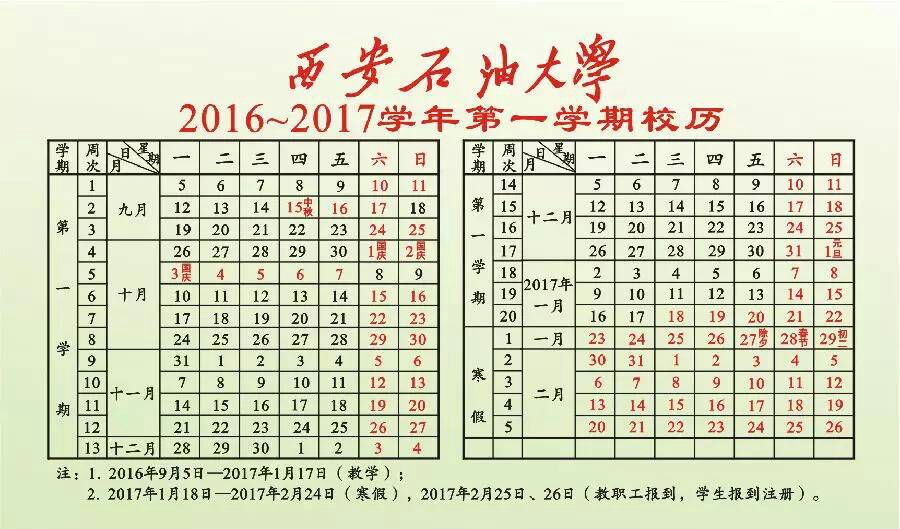 西安石油大學
2016~2017学年第一学期校历
学期 周次 星期 日 月 一 二 三 四 五 六 日
第一学期
1 九月 5 6 7 8 9 10 11
2 12 13 14 15中秋 16 17 18
3 19 20 21 22 23 24 25
4 十月 26 27 28 29 30 1国庆 2国庆
5 3国庆 4 5 6 7 8 9
6 10 11 12 13 14 15 16
7 17 18 19 20 21 22 23
8 24 25 26 27 28 29 30
9 十一月 31 1 2 3 4 5 6
10 7 8 9 10 11 12 13
11 14 15 16 17 18 19 20
12 21 22 23 24 25 26 27
13 十二月 28 29 30 1 2 3 4
学期 周次 星期 日 月 一 二 三 四 五 六 日
第一学期
14 十二月 5 6 7 8 9 10 11
15 12 13 14 15 16 17 18
16 19 20 21 22 23 24 25
17 26 27 28 29 30 31 1元旦
18 2017年一月 2 3 4 5 6 7 8
19 9 10 11 12 13 14 15
20 16 17 18 19 20 21 22
寒假
1 一月 23 24 25 26 27除夕 28春节 29初二
2 二月 30 31 1 2 3 4 5
3 6 7 8 9 10 11 12
4 13 14 15 16 17 18 19
5 20 21 22 23 24 25 26
注：1. 2016年9月5日—2017年1月17日（教学）；
2. 2017年1月18日—2017年2月24日（寒假），2017年2月25日、26日（教职工报到，学生报到注册）。